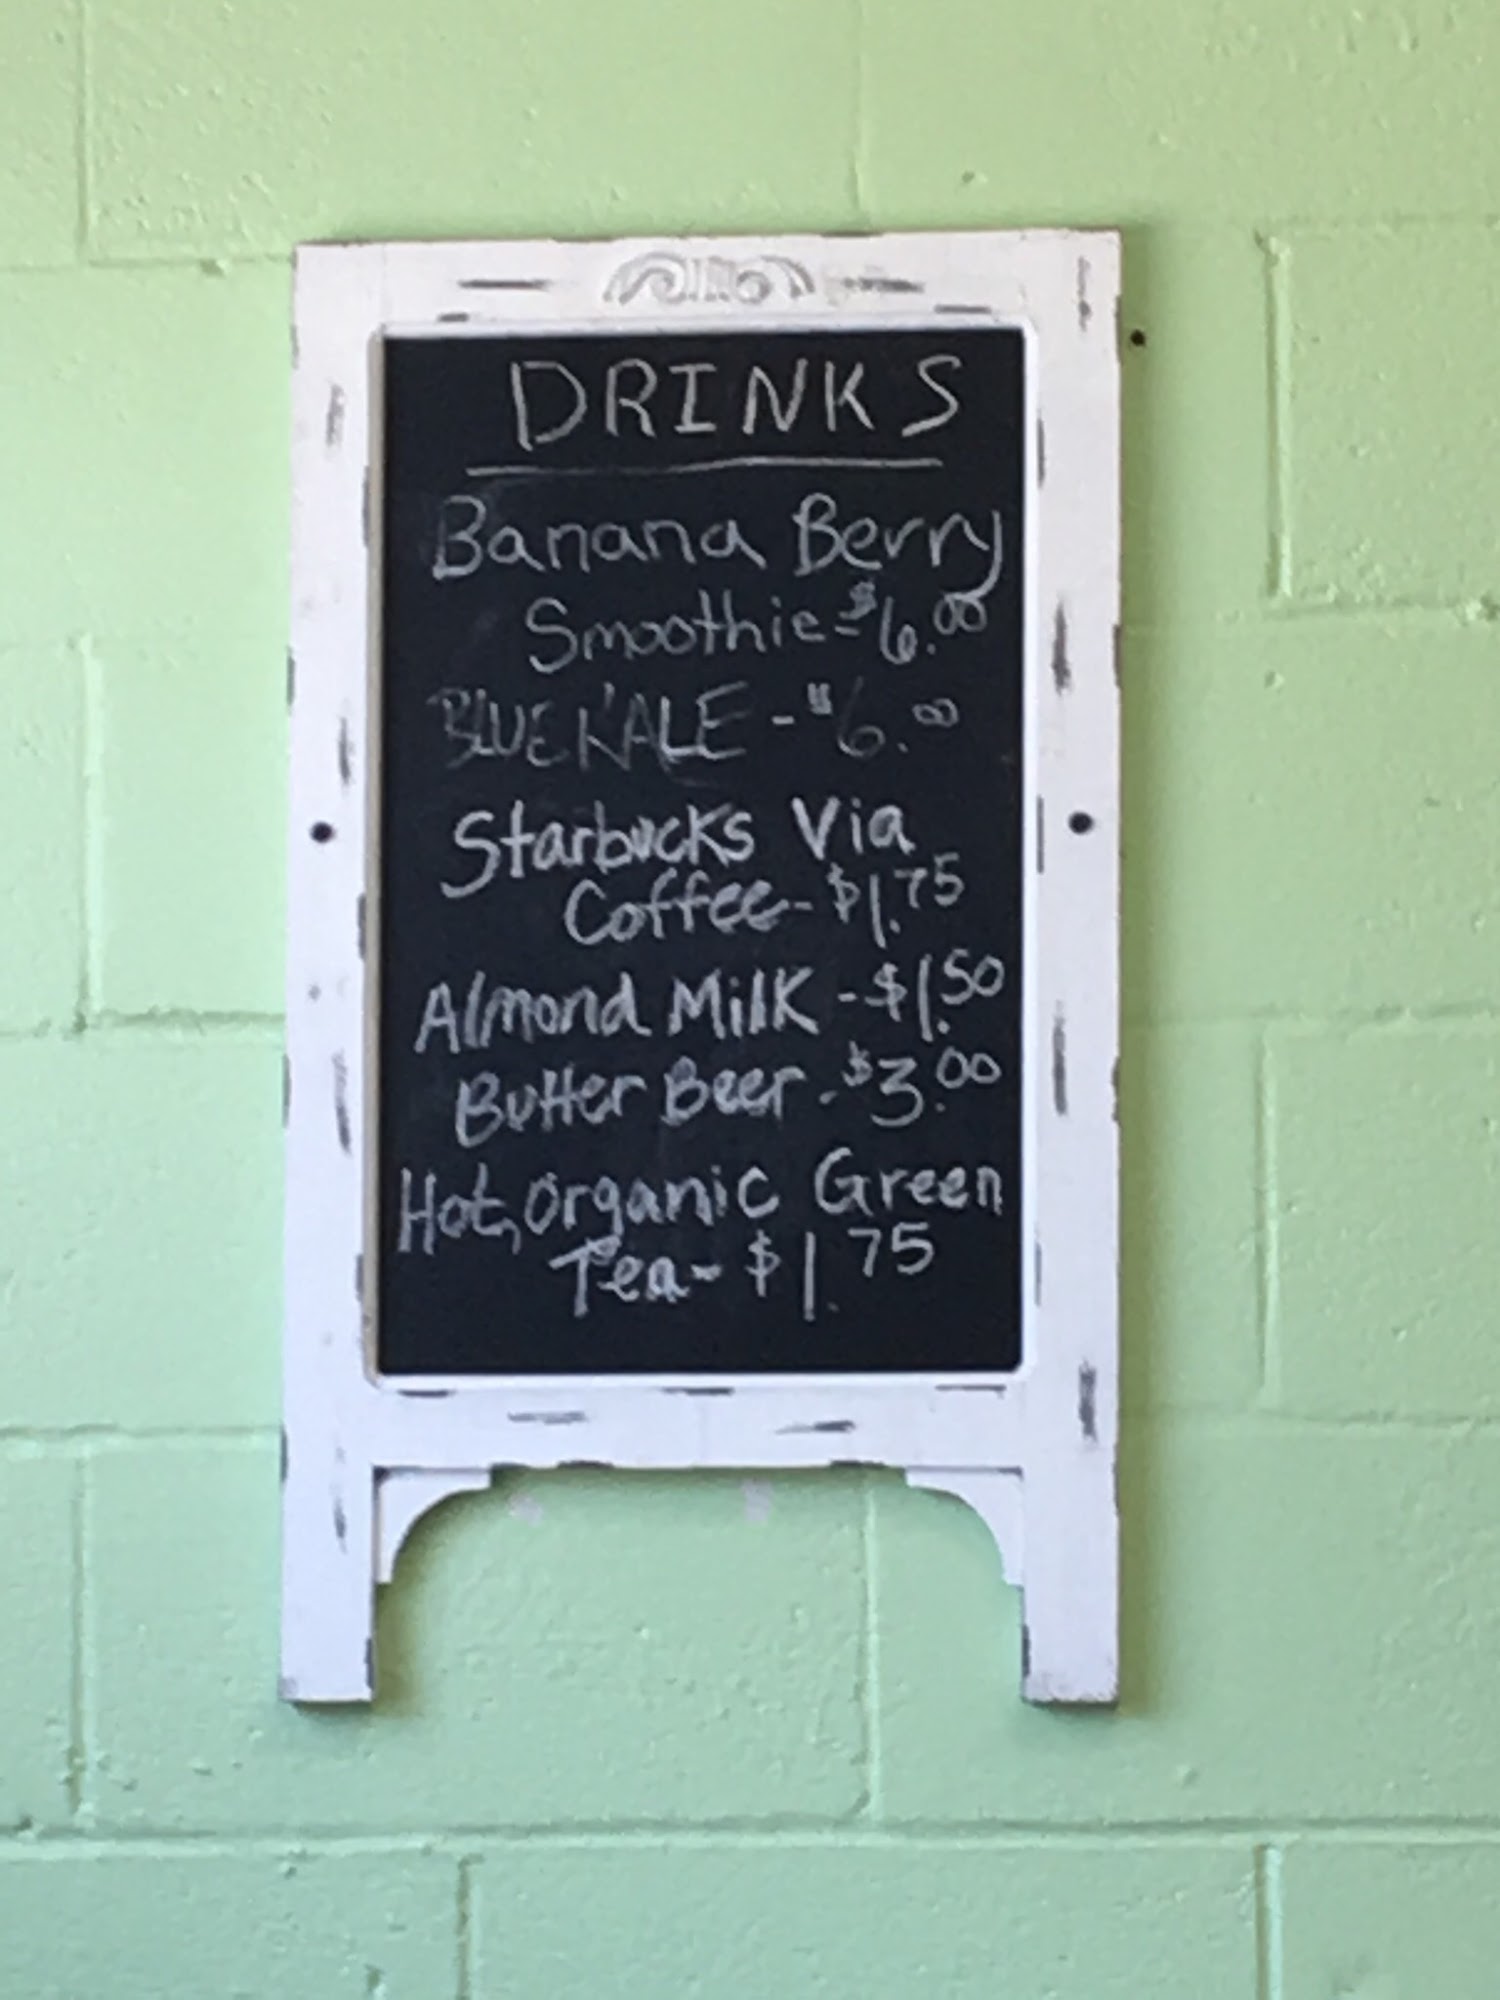 DRINKS
Banana Berry
Smoothie - $6.00
BLUE KALE - $6.00
Starbucks Via
Coffee - $1.75
Almond Milk - $1.50
Butter Beer - $3.00
Hot, Organic Green
Tea - $1.75